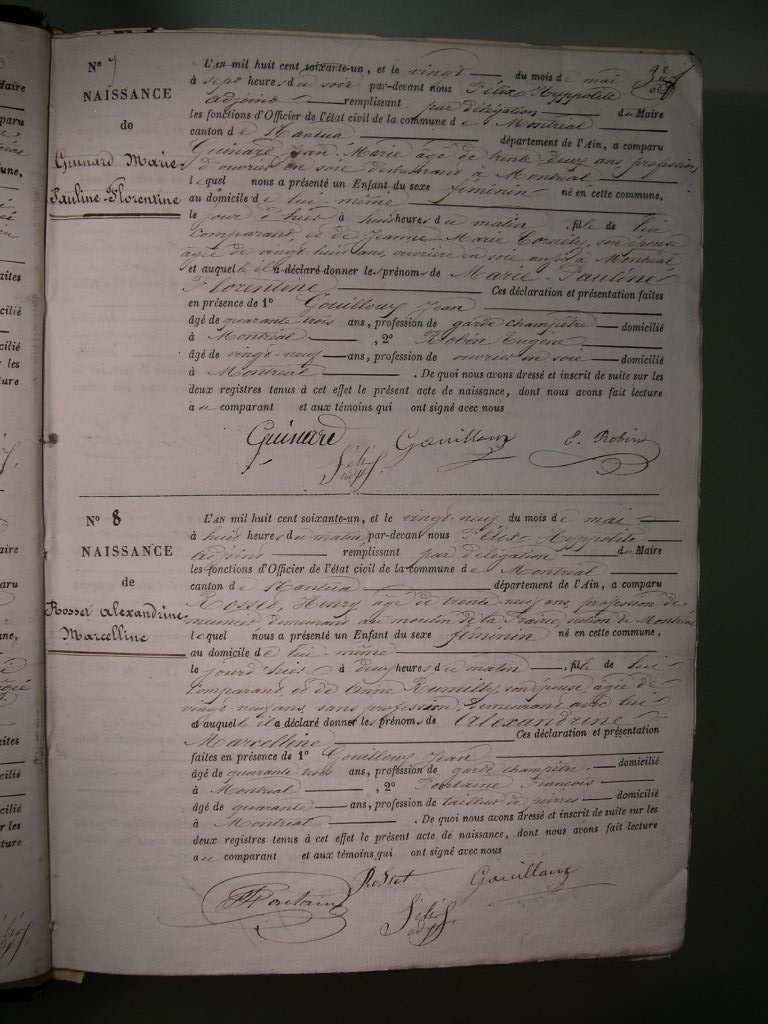 N° 7
NAISSANCE
de
Guinard Marie-
Pauline-Florentine
L'AN mil huit cent soixante-un, et le vingt du mois de mai
à sept heures du soir par-devant nous Félix Hyppolite
adjoint remplissant par délégation du Maire
les fonctions d'Officier de l'état civil de la commune de Montréal
canton de Nantua département de l'Ain, a comparu
Guinard Jean-Marie âgé de trente deux ans, profession
d'ouvrier en soie demeurant à Montréal
lequel nous a présenté un Enfant du sexe féminin né en cette commune,
au domicile de lui même
le jour d'hier à huit heures du matin, fille de lui
comparant, et de Jeanne-Marie son épouse
âgée de vingt huit ans, ouvrière en soie aussi à Montréal
et auquel il a déclaré donner les prénoms de Marie-Pauline-
Florentine Ces déclaration et présentation faites
en présence de 1° Gouilloux Jean
âgé de quarante trois ans, profession de garde champêtre domicilié
à Montréal, 2° Robin Eugène
âgé de vingt-neuf ans, profession de ouvrier en soie domicilié
à Montréal. De quoi nous avons dressé et inscrit de suite sur les
deux registres tenus à cet effet le présent acte de naissance, dont nous avons fait lecture
au comparant et aux témoins qui ont signé avec nous
Guinard Gouilloux E. Robin
Félix
adjt
N° 8
NAISSANCE
de
Rosset Alexandrine-
Marcelline
L'AN mil huit cent soixante-un, et le vingt-neuf du mois de mai
à huit heures du matin, par-devant nous Félix Hyppolite
adjoint remplissant par délégation du Maire
les fonctions d'Officier de l'état civil de la commune de Montréal
canton de Nantua département de l'Ain, a comparu
Rosset, Henry âgé de trente neuf ans, profession de
meunier demeurant au moulin de la Prairie, section de Montréal
lequel nous a présenté un Enfant du sexe féminin né en cette commune,
au domicile de lui-même
le jourd'hier à deux heures du matin, fille de lui
comparant et de Anne son épouse, âgée de
ans, sans profession, demeurant avec lui
et auquel il a déclaré donner les prénoms de Alexandrine-
Marcelline Ces déclaration et présentation
faites en présence de 1° Gouilloux Jean
âgé de quarante trois ans, profession de garde champêtre domicilié
à Montréal, 2° Fontaine François
âgé de quarante ans, profession de tailleur de pierres domicilié
à Montréal. De quoi nous avons dressé et inscrit de suite sur les
deux registres tenus à cet effet le présent acte de naissance, dont nous avons fait lecture
au comparant et aux témoins qui ont signé avec nous
Fontaine Rosset Gouilloux
Félix
adjt